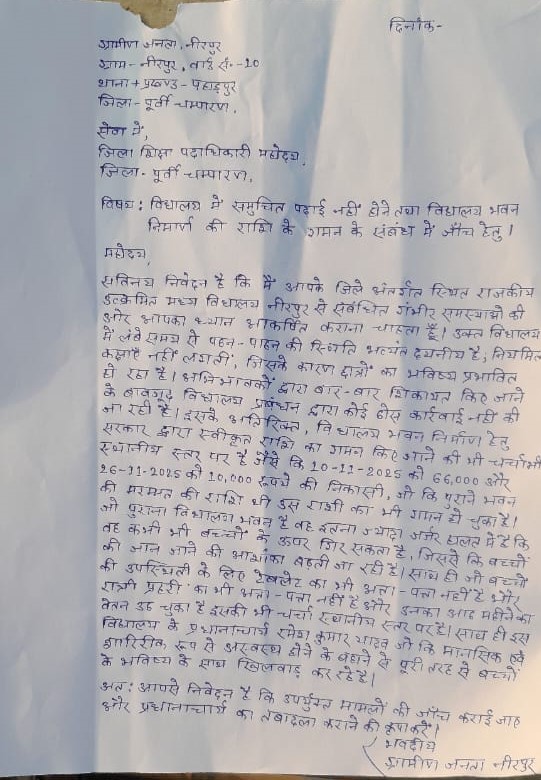 दिनांक-
ग्रामीण जनता, नीरपुर
ग्राम - नीरपुर, वार्ड सं. -20
थाना + प्रखण्ड - पहाड़पुर
जिला - पूर्वी चम्पारण,
सेवा में,
जिला शिक्षा पदाधिकारी महोदय,
जिला - पूर्वी चम्पारण,
विषय : विद्यालय में समुचित पढ़ाई नहीं होने तथा विद्यालय भवन
निमार्ण की राशि के गमन के संबंध में जाँच हेतु।
महोदय,
सविनय निवेदन है कि मैं आपके जिले अंतर्गत स्थित राजकीय
उत्क्रमित मध्य विद्यालय नीरपुर से संबंधित गंभीर समस्याओं की
ओर आपका ध्यान आकर्षित कराना चाहता हूँ। उक्त विद्यालय
में लंबे समय से पठन - पाठन की स्थिति अत्यंत दयनीय है, नियमित
कक्षाएँ नहीं लगती, जिसके कारण छात्रों का भविष्य प्रभावित
हो रहा है। अभिभावकों द्वारा बार-बार शिकायत किए जाने
के बावजूद विद्यालय प्रबंधन द्वारा कोई ठोस कार्रवाई नहीं की
जा रही है। इसके अतिरिक्त, विद्यालय भवन निर्माण हेतु
सरकार द्वारा स्वीकृत राशि का गमन किए जाने की भी चर्चा भी
स्थानीय स्तर पर है जैसे कि 20-11-2025 को 66,000 और
26-11-2025 को 10,000 रूपये की निकासी, जो कि पुराने भवन
की मरम्मत की राशि थी उस राशी का भी गमन हो चुका है।
जो पुराना विद्यालय भवन है वह इतना ज्यादा जर्जर हालत में है कि
वह कभी भी बच्चों के ऊपर गिर सकता है, जिससे कि बच्चों
की जान जाने की आशंका बढ़ती जा रही है। साथ ही जो बच्चों
की उपस्थिती के लिए टेबलेट का भी अता - पता नहीं है और
रात्री प्रहरी का भी अता - पता नहीं है और उनका आठ महीने का
वेतन उठ चुका है इसकी भी चर्चा स्थानीय स्तर पर है। साथ ही इस
विद्यालय के प्रधानाचार्य रमेश कुमार यादव जो कि मानसिक एवं
शारिरीक रूप से अस्वस्थ होने के बहाने से पूरी तरह से बच्चों
के भविष्य के साथ खिलवाड़ कर रहे है।
अतः आपसे निवेदन है कि उपर्युक्त मामलों की जाँच कराई जाए
और प्रधानाचार्य का तबादला कराने की कृपा करें।
भवदीय
ग्रामीण जनता नीरपुर